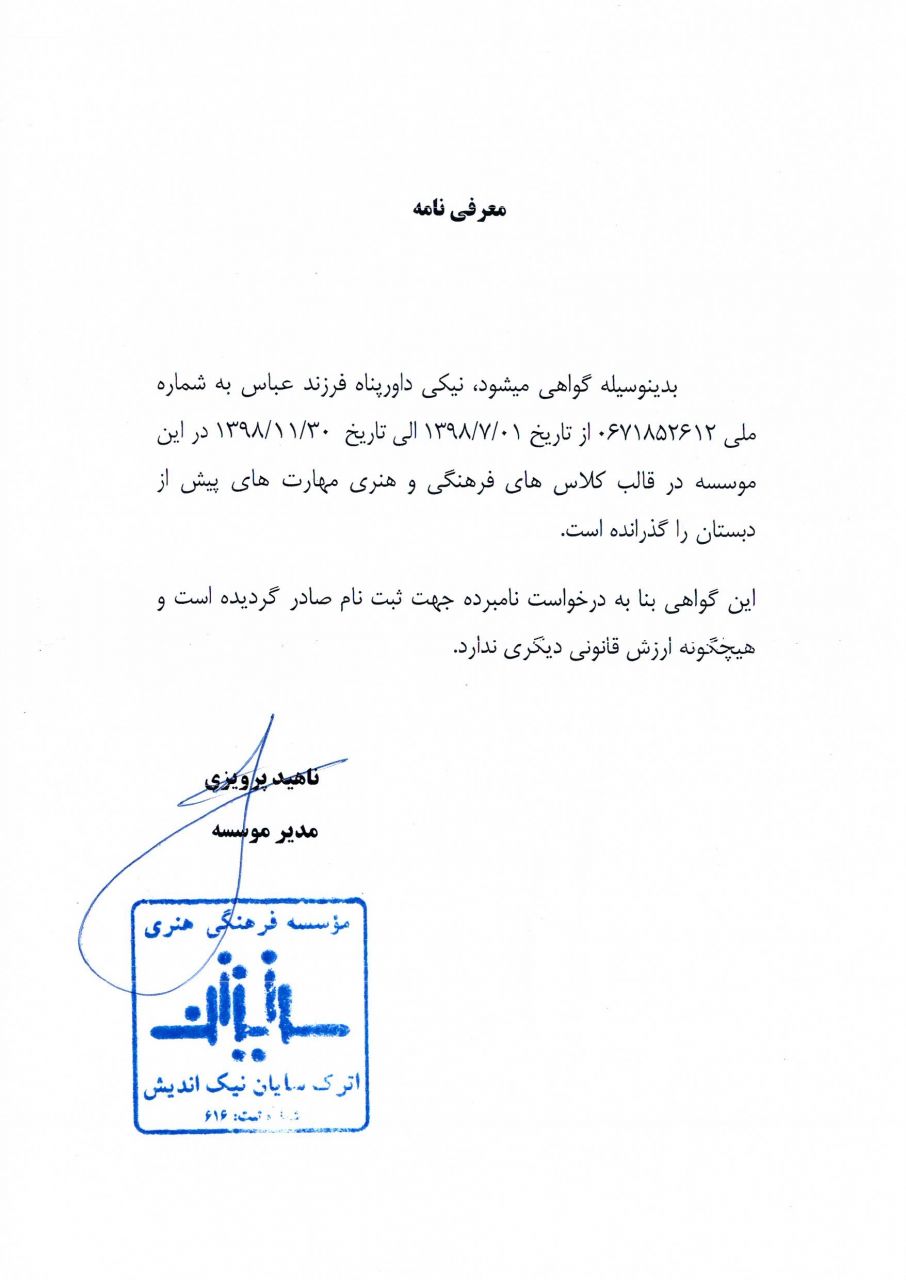 معرفی نامه
بدینوسیله گواهی میشود، نیکی داورپناه فرزند عباس به شماره
ملی ۰۶۷۱۸۵۲۶۱۲ از تاریخ ۱۳۹۸/۷/۰۱ الی تاریخ ۱۳۹۸/۱۱/۳۰ در این
موسسه در قالب کلاس های فرهنگی و هنری مهارت های پیش از
دبستان را گذرانده است.
این گواهی بنا به درخواست نامبرده جهت ثبت نام صادر گردیده است و
هیچگونه ارزش قانونی دیگری ندارد.
ناهید پرویزی
مدیر موسسه
مؤسسه فرهنگی هنری
اترک سایان نیک اندیش
شماره ثبت: ۶۱۶